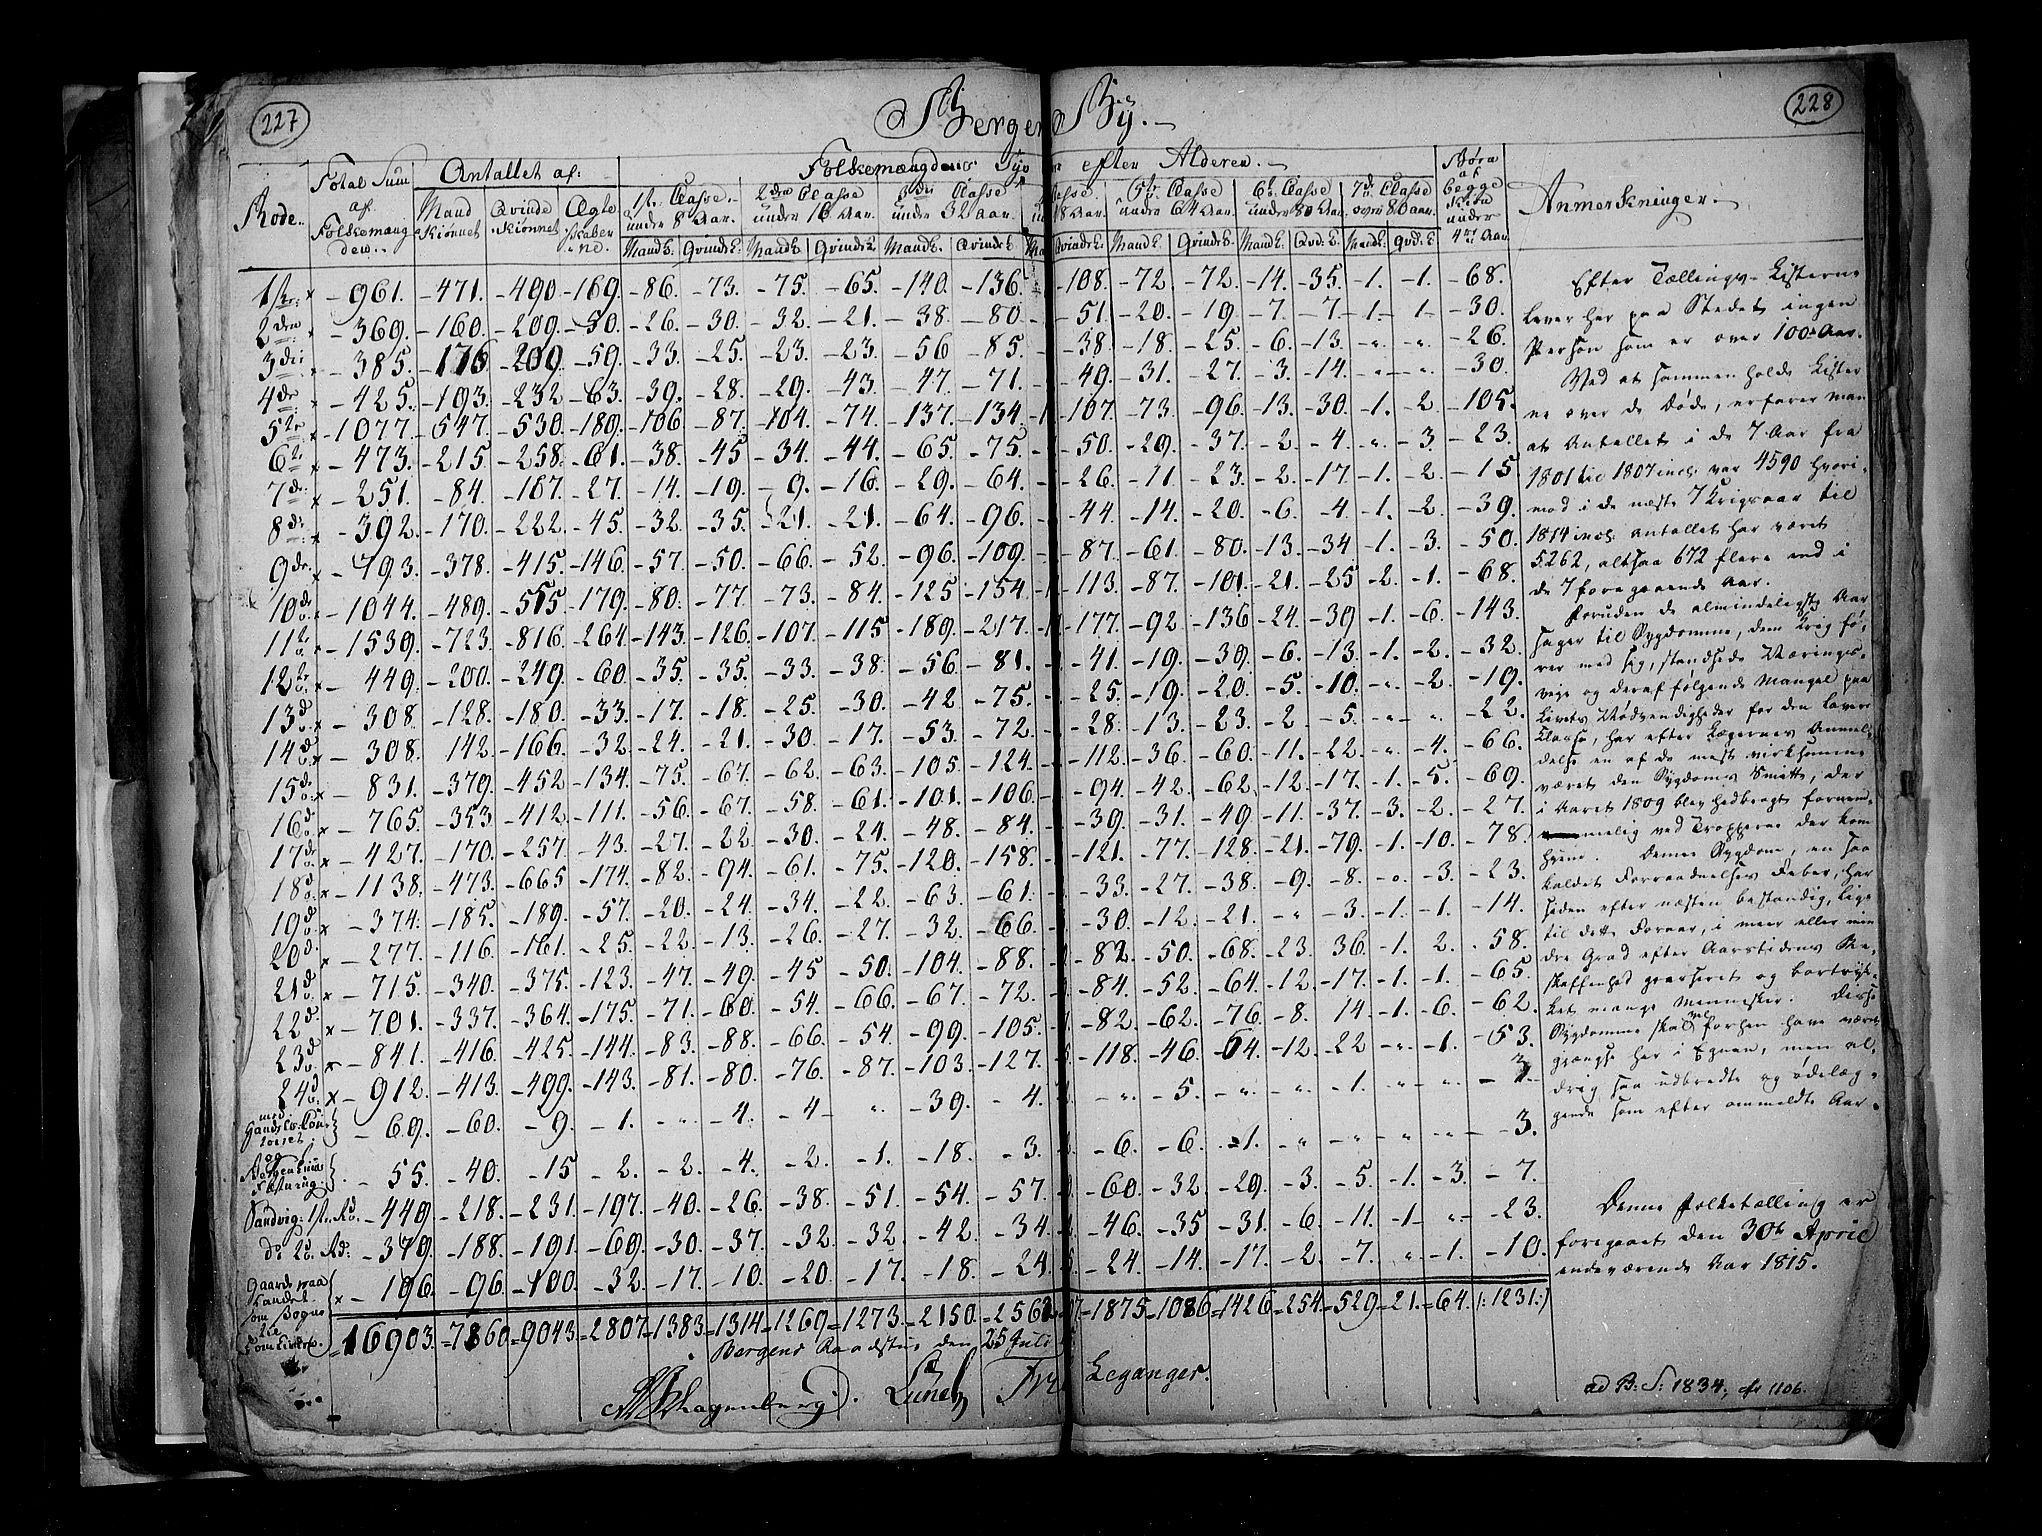 227
228
Bergens By.
Rode. Total Sum af Folkemængden. Antallet af: Folkemængdens efter Alderen. Børn af begge Kiøn under 4re Aar Anmerkninger.
Mand Kiønnet Qvinde Kiønnet Ægteskaberne 1ste Classe under 8 Aar. 2den Classe under 16 Aar. 3die Classe under 32 Aar. 5te Classe under 64 Aar. 6te Classe under 80 Aar 7de Classe over 80 Aar.
Mandk: Qvindek: Mandk: Qvindek: Mandk. Qvindek Qvindek: Mandk: Qvindek. Mandk: Qvd:k: Mandk: Qvd:k
1ste x - 961. - 471. - 490 - 169. - 86. - 73. - 75. - 65. - 140. - 136. - 108. - 72 - 72. - 14. - 35. - 1. - 1. - 68.
2den x - 369. - 160. - 209. - 50. - 26. - 30. - 32. - 21. - 38. - 80. - 51. - 20. - 19. - 7. - 7. - 1. - 1 - 30.
3die x - 385. - 176 - 209. - 59. - 33. - 25. - 23. - 23. - 56 - 85. - 38. - 18. - 25. - 6. - 13. - " - " - 26.
4de x - 425. - 193. - 232 - 63. - 39. - 28. - 29. - 43. - 47. - 71. - 49. - 31. - 27. - 3. - 14. - " - " - 30.
5te x - 1077. - 547. - 530. - 189. - 106 - 87. - 104. - 74. - 137. - 134. - 107. - 73. - 96. - 13. - 30. - 1. - 2. - 105.
6te x - 473. - 215. - 258. - 61. - 38. - 45 - 34. - 44. - 65. - 75. - 50. - 29. - 37. - 2. - 4. - " - 3. - 23.
7de x - 251. - 84. - 167. - 27. - 14. - 19. - 9. - 16. - 29. - 64. - 26. - 11. - 23. - 2. - 17. - 1. - 2. - 15
8de x - 392. - 170. - 222. - 45. - 32. - 35. - 21. - 21. - 64. - 96. - 44. - 14. - 20. - 6. - 4. - 1. - 2. - 39.
9de x - 793. - 378. - 415. - 146. - 57. - 50. - 66. - 52. - 96. - 109. - 87. - 61. - 80. - 13. - 34 - 1. - 3. - 50.
10de x - 1044. - 489. - 555 - 179. - 80. - 77. - 73. - 84. - 125 - 154. - 113. - 87. - 101. - 21. - 25 - 2. - 1. - 68.
11te x - 1539. - 723. - 816. - 264. - 143. - 126. - 107. - 115 - 189. - 217. - 177. - 92. - 136 - 24. - 39 - 1. - 6. - 143.
12te x - 449. - 200. - 249. - 60. - 35. - 35. - 33. - 38. - 56. - 81. - 41. - 19. - 39. - 6. - 13. - 1. - 2. - 32.
13de x - 308. - 128. - 180. - 33. - 17. - 18. - 25. - 30. - 42 - 75. - 25. - 19. - 20. - 5. - 10. - " - 2. - 19.
14de x - 308. 142. - 166. - 32. - 24. - 21. - 30. - 17. - 53. - 72. - 28. - 13. - 23. - 2. - 5. - " - " - 22.
15de x - 831. - 379. - 452 - 134. - 75. - 67. - 62. - 63. - 105. - 124. - 112. - 36. - 60. - 11. - 22. - " - 4. - 66.
16de x - 765. - 353. - 412. - 111. - 56. - 67. - 58. - 61. - 101. - 106. - 94. - 42. - 62. - 12. - 17. - 1. - 5. - 69.
17de x - 427. - 170. - 257. - 43. - 27. - 22 - 30. - 24. - 48. - 84. - 39. - 31. - 49. - 11. - 37. - 3. - 2. - 27.
18de x - 1138. - 473. - 665 - 174. - 82. - 94. - 61. - 75. - 120. - 158. - 121. - 77. - 128. - 21. - 79. - 1. - 10. - 78.
19de x - 374. - 185. - 189. - 57. - 20. - 24. - 34. - 22. - 63. - 61. - 33. - 27. - 38. - 9. - 8. - " - 3. - 23.
20de x - 277. - 116. - 161. - 25. - 22. - 13. - 26. - 27. - 32. - 66. - 30. - 12. - 21. - " - 3. - 1. - 1. - 14.
21de x - 715. - 340. - 375. - 123. - 47. - 49. - 45 - 50. - 104. - 88. - 82. - 50. - 68. - 23. 36. - 1. 2. - 58.
22de x - 701. - 337. - 364. - 175. - 71. - 60. - 54. - 66. - 67. - 72. - 84. - 52. - 64. - 12. - 17. - 1. - 1. - 65.
23de x - 841. - 416. - 425. - 144. - 83. - 88. - 66. - 54. - 99. - 105. - 82. - 62. - 76. - 8. 14. - 1. - 6. - 62.
24de x - 912. - 413. - 499. - 143. - 81. - 80. - 76. - 87. - 103. - 127. - 118. - 46. - 64. - 12. - 22 - " - 1. - 53.
- 69. - 60. - 9. - 1. - " - 4. - 4 - " - 39. - 4. - " - 5. - " - " - 1. - " - " - 3
og
- 55. - 40. - 15 - 2. - 2. - 4. - 2. - 1. - 18. - 3. - 6. - 6. - 1. - " - " - " - " - 3.
Sandvig: 1ste Ro. - 449. - 218. - 231. - 197. - 40. - 26. - 38. - 51. - 54. - 57. - 60. - 32. - 29. - 3. - 5. - 1. - 3. - 7.
do 2d. Rd: - 379. - 188. - 191. - 69. - 30. - 37. - 32. - 32. - 42. - 34. - 46. - 35. - 31. - 6. - 11. - 1 - " - 23.
Gaarde paa Landet x - 196. - 96. - 100. - 32. - 17. - 10. - 20. - 17. - 18. - 24. - 24. - 14. - 17. - 2. - 7. " - 1. - 10.
16903. = 7860 = 9043. = 2807. = 1383. = 1314. = 1269. = 1273. = 2150. = 2562 = 1875. = 1086 = 1426. = 254. = 529. = 21. = 64. (: 1231. :)
Bergens Raadstue den 25 Juli
Leganger.
Efter Tællings-Listerne
lever her paa Stedet ingen
Person som er over 100 Aar.
Ved at sammenholde Lister
ne over de Døde, erfarer man
at Antallet i de 7 Aar fra
1801 til 1807 incl. var 4590 hvori
mod i de næste 7 Krigsaar til
1814 incl. antallet har været
5262, altsaa 672 flere end i
de 7 foregaaende Aar.
Foruden de almindeligste Aar
sager til Sygdomme, dem Krig fø,
rer med sig, standsede Nærings-
veje og deraf følgende Mangel paa
Livets Nødvendigheder for den lavere
Classe, har efter Lægernes Anmel-
delse en af de mest virksomme
været den Sygdoms Smitte, der
i Aaret 1809 blev hidbragt fornem-
melig ved Tropperne der kom
hjem. Denne Sygdom, en saa
kaldet Forraadnelses Feber, har
siden efter næsten bestandig, lige
til dette Foraar, i meer eller min
dre Grad efter Aarstidens Be-
skaffenhed grasseret og bortryk-
ket mange Mennesker. Disse
Sygdomme skal vel forhen have været
gængse her i Egnen, men al-
drig saa udbredte og ødelæg-
gende som efter anmeldte Aar.
Denne Folketælling er
foregaaet den 30te April
indeværende Aar 1815.
ad B: S: 1834, 1106.